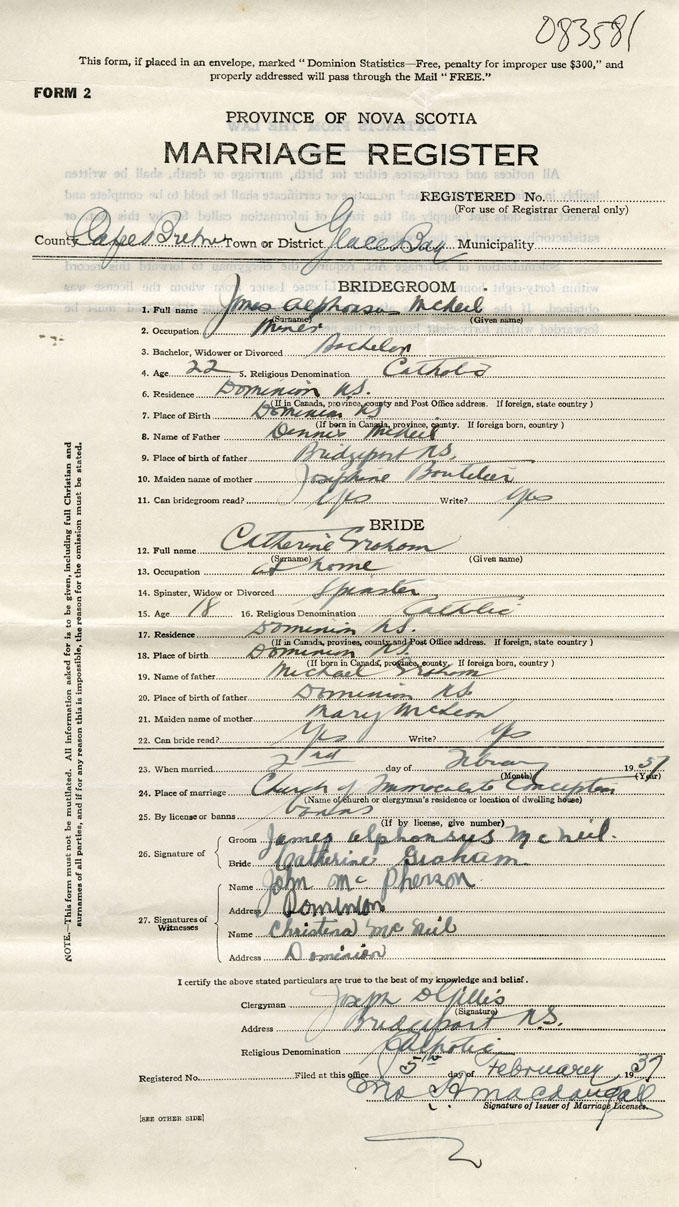 083581
This form, if placed in an envelope, marked "Dominion Statistics—Free, penalty for improper use $300," and
properly addressed will pass through the Mail "FREE."
FORM 2
PROVINCE OF NOVA SCOTIA
MARRIAGE REGISTER
REGISTERED No.
(For use of Registrar General only)
County Cape Breton Town or District Glace Bay Municipality
BRIDEGROOM
1. Full name James Alphonsus McNeil
(Surname) (Given name)
2. Occupation Miner
3. Bachelor, Widower or Divorced Bachelor
4. Age 22 5. Religious Denomination Catholic
6. Residence Dominion N.S.
(If in Canada, province, county and Post Office address. If foreign, state country)
7. Place of Birth Dominion NS
(If born in Canada, province, county. If foreign born, country)
8. Name of Father Dennis McNeil
9. Place of birth of father Bridgeport N.S.
10. Maiden name of mother Josephine Boutilier
11. Can bridegroom read? Yes Write? Yes
BRIDE
12. Full name Catherine Graham
(Surname) (Given name)
13. Occupation at home
14. Spinster, Widow or Divorced Spinster
15. Age 18 16. Religious Denomination Catholic
17. Residence Dominion N.S.
(If in Canada, province, county and Post Office address. If foreign, state country)
18. Place of birth Dominion N.S.
(If born in Canada, province, county. If foreign born, country)
19. Name of father Michael Graham
20. Place of birth of father Dominion NS
21. Maiden name of mother Mary McLean
22. Can bride read? Yes Write? Yes
23. When married 2nd day of February 1937
(Month) (Year)
24. Place of marriage Church of Immaculate Conception
(Name of church or clergyman's residence or location of dwelling house)
25. By license or banns banns
(If by license, give number)
26. Signature of Groom James Alphonsus McNeil.
Bride Catherine Graham
27. Signatures of Witnesses Name John McPherson
Address Dominion
Name Christena McNeil
Address Dominion
I certify the above stated particulars are true to the best of my knowledge and belief.
Clergyman Joseph D Gillis
(Signature)
Address Bridgeport N.S.
Religious Denomination Catholic
Registered No. Filed at this office 5th day of Februarey 1937
MacDougall
Signature of Issuer of Marriage Licenses.
[SEE OTHER SIDE]
NOTE.—This form must not be mutilated. All information asked for is to be given, including full Christian and
surnames of all parties, and if for any reason this is impossible, the reason for the omission must be stated.